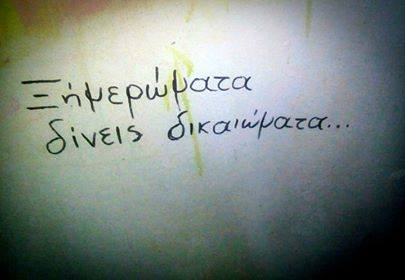 Ξήμερώματα
δίνεις δικαιώματα...